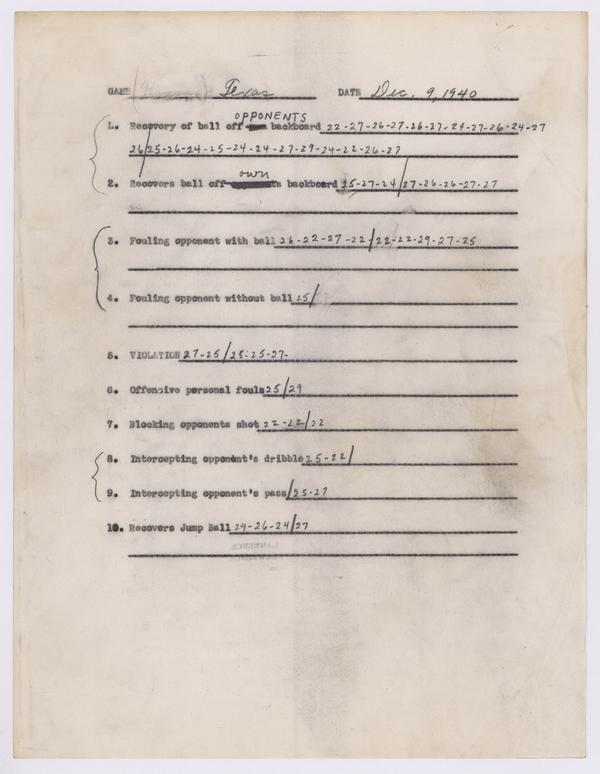 GAME Texas DATE Dec. 9, 1940
OPPONENTS
1. Recovery of ball off backboard 22-27-26-27-26-27-29-27-26-24-27
26/25-26-24-25-24-24-27-29-24-22-26-27
own
2. Recovers ball off backboard 25-27-24/27-26-26-27-27
3. Fouling opponent with ball 26-22-27-22/22-22-29-27-25
4. Fouling opponent without ball 25/
5. VIOLATION 27-25/25-25-27-
6. Offensive personal fouls 25/29
7. Blocking opponents shot 22-22/22
8. Intercepting opponent's dribble 25-22/
9. Intercepting opponent's pass/25-27
10. Recovers Jump Ball 24-26-24/27